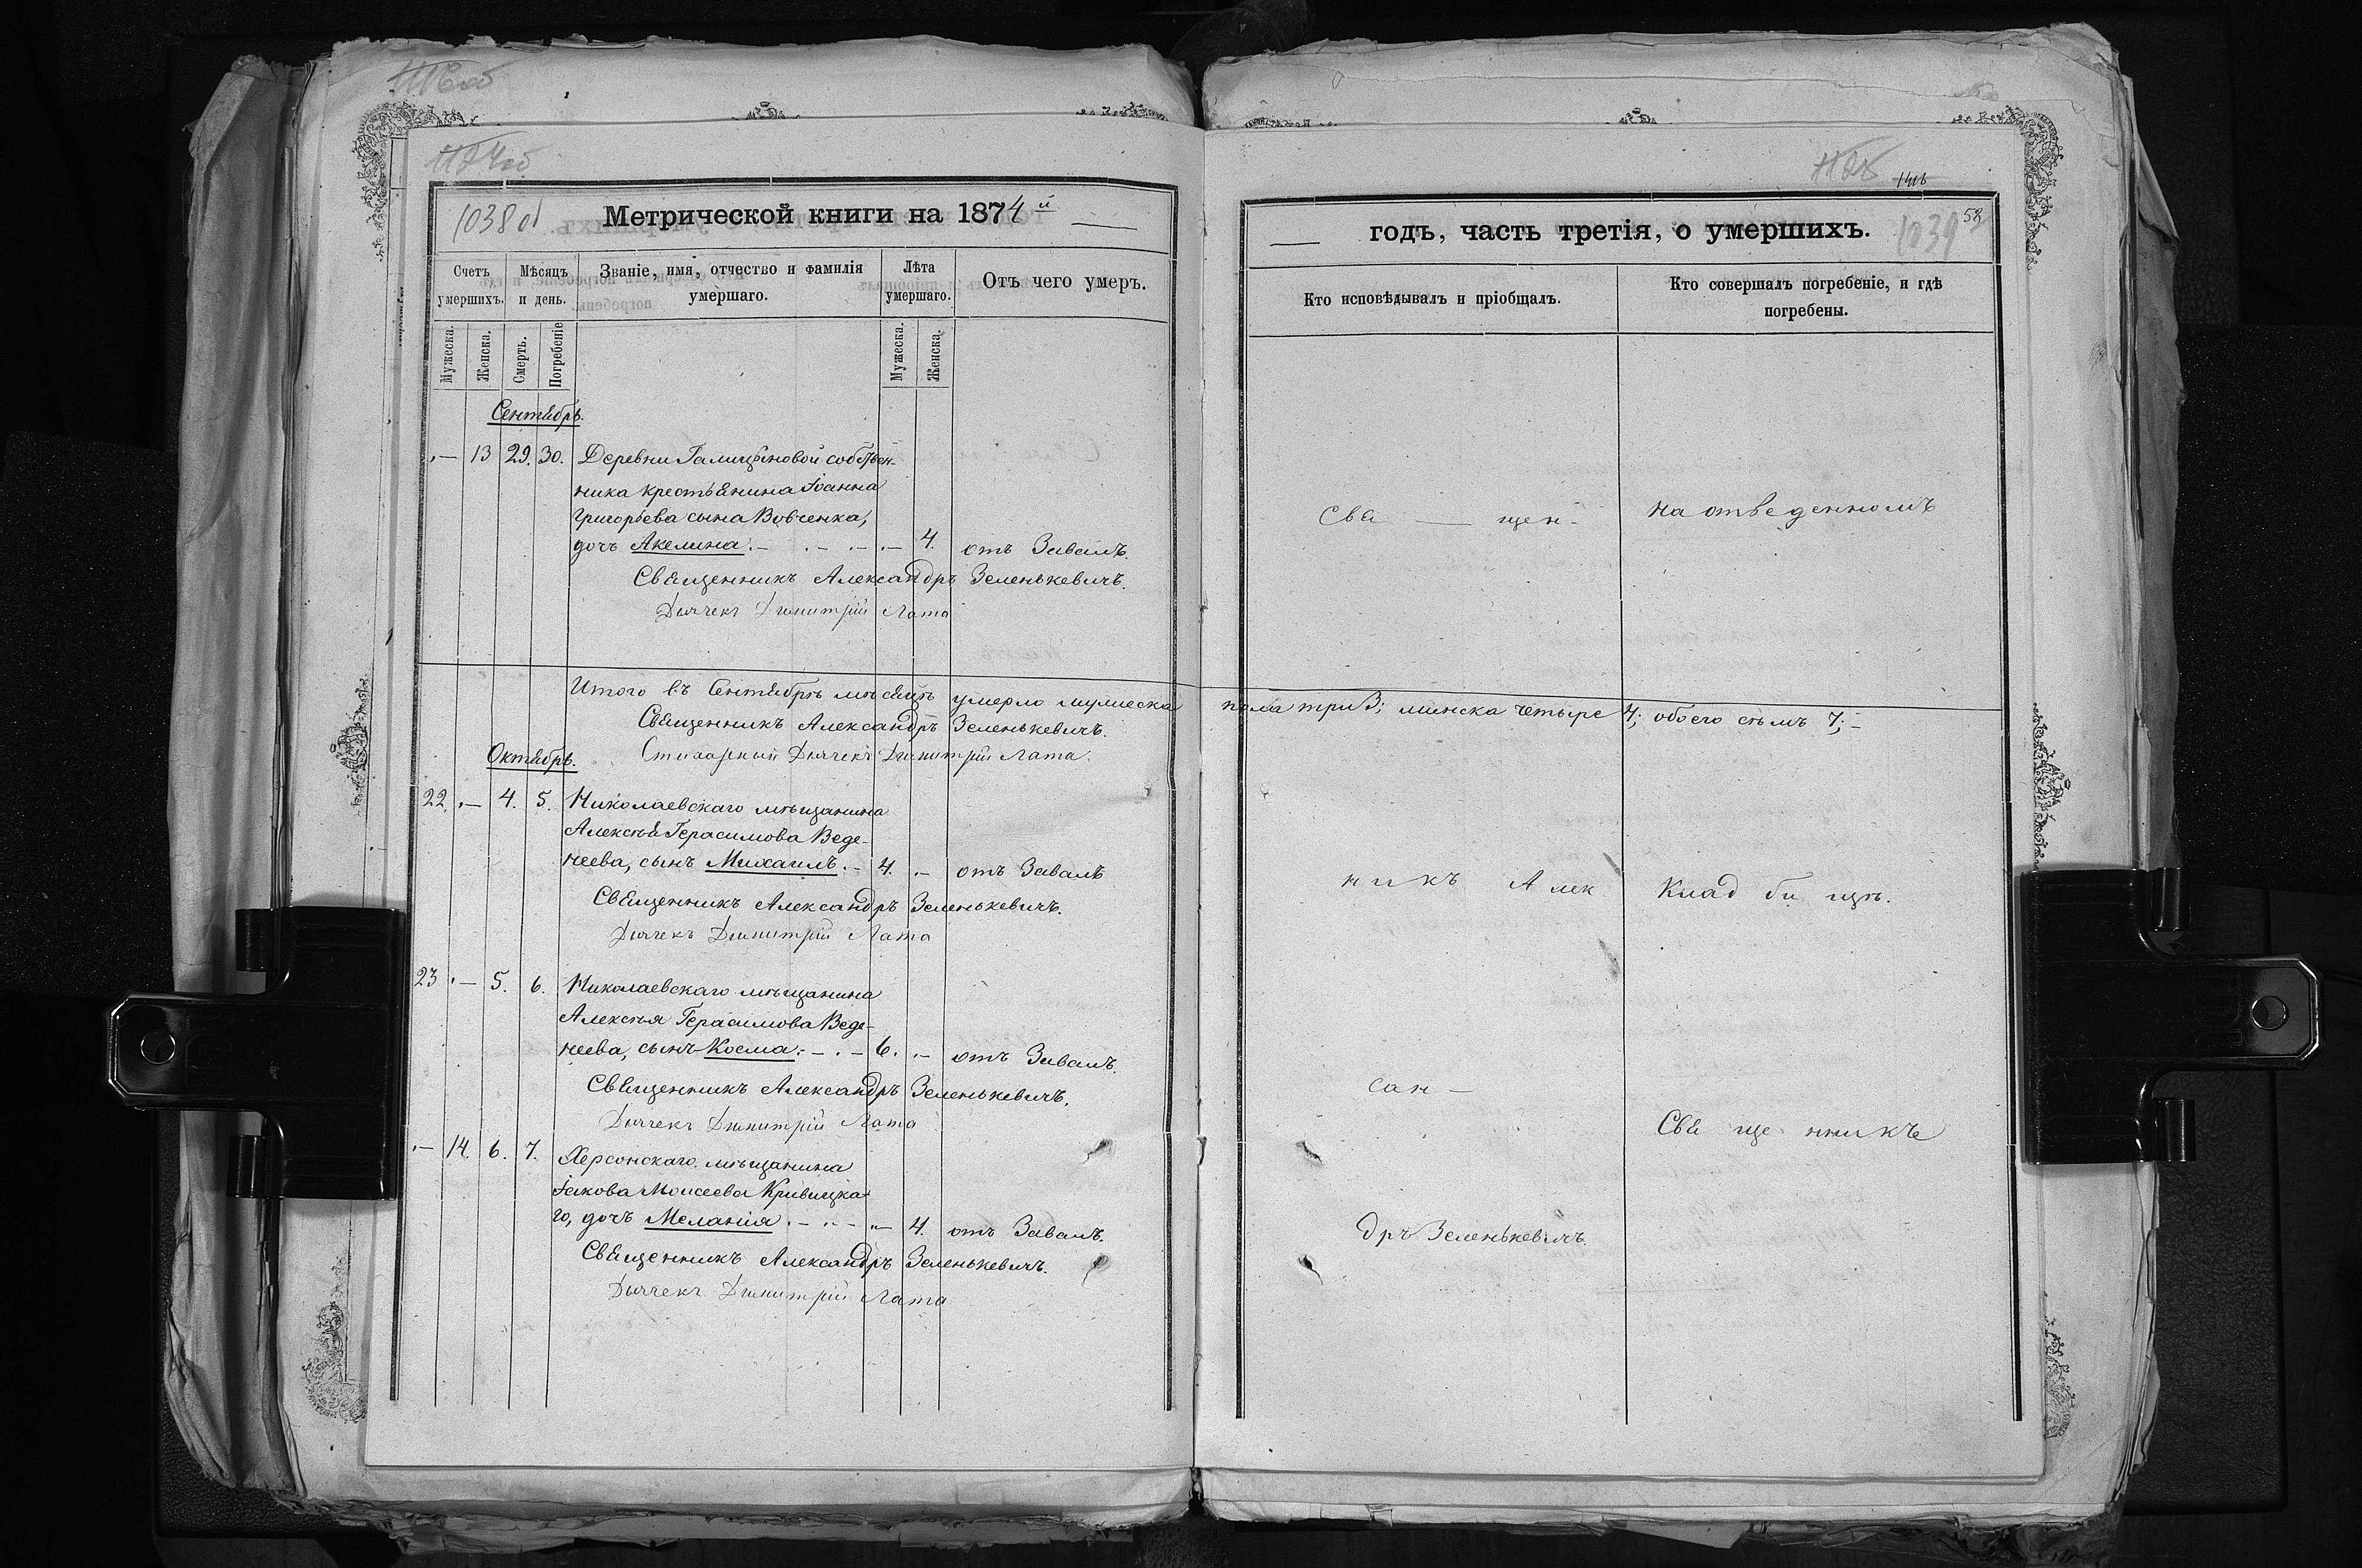 1038 об
Метрической книги на 1874й
Счетъ умершихъ.
Мѣсяцъ и день.
Званіе, имя, отчество и фамилія умершаго.
Лѣта умершаго.
Отъ чего умеръ.
Мужеска.
Женска.
Смерть.
Погребеніе
Мужеска.
Женска.
Сентябрь.
.— 13 29. 30. Деревни Галицыновой собствен-
ника крестьянина Іоанна
Григорьева сына Вовченка,
дочь Акелина . — . — . — . — 4. отъ Завалъ.
Священникъ Александръ Зеленькевичъ.
Дьячекъ Димитрій Лата
Итого въ Сентябрѣ мѣсяцѣ умерло мужеска пола три 3; женска четыре 4; обоего сѣмъ 7; —
Священникъ Александръ Зеленькевичъ.
Стихарный Дьячекъ Димитрій Лата.
Октябрь.
22 .— 4. 5. Николаевскаго мѣщанина
Алексѣя Герасимова Веде-
неева, сынъ Михаилъ . — 4. .— отъ Завалъ
Священникъ Александръ Зеленькевичъ.
Дьячекъ Димитрій Лата
23 .— 5. 6. Николаевскаго мѣщанина
Алексѣя Герасимова Веде-
неева, сынъ Косма . — . — 6. .— отъ Завалъ.
Священникъ Александръ Зеленькевичъ.
Дьячекъ Димитрій Лата
.— 14. 6. 7. Херсонскаго мѣщанина
Іакова Моисеева Кривицка-
го, дочь Меланія . — . — „— 4. отъ Завалъ.
Священникъ Александръ Зеленькевичъ.
Дьячекъ Димитрій Лата
1039
58
годъ, часть третія, о умершихъ.
Кто исповѣдывалъ и пріобщалъ.
Кто совершалъ погребеніе, и гдѣ погребены.
Свя — щен-
на отведенномъ
никъ Алек
Клад би щѣ.
сан —
Свя ще нникъ
дръ Зеленькевичъ.